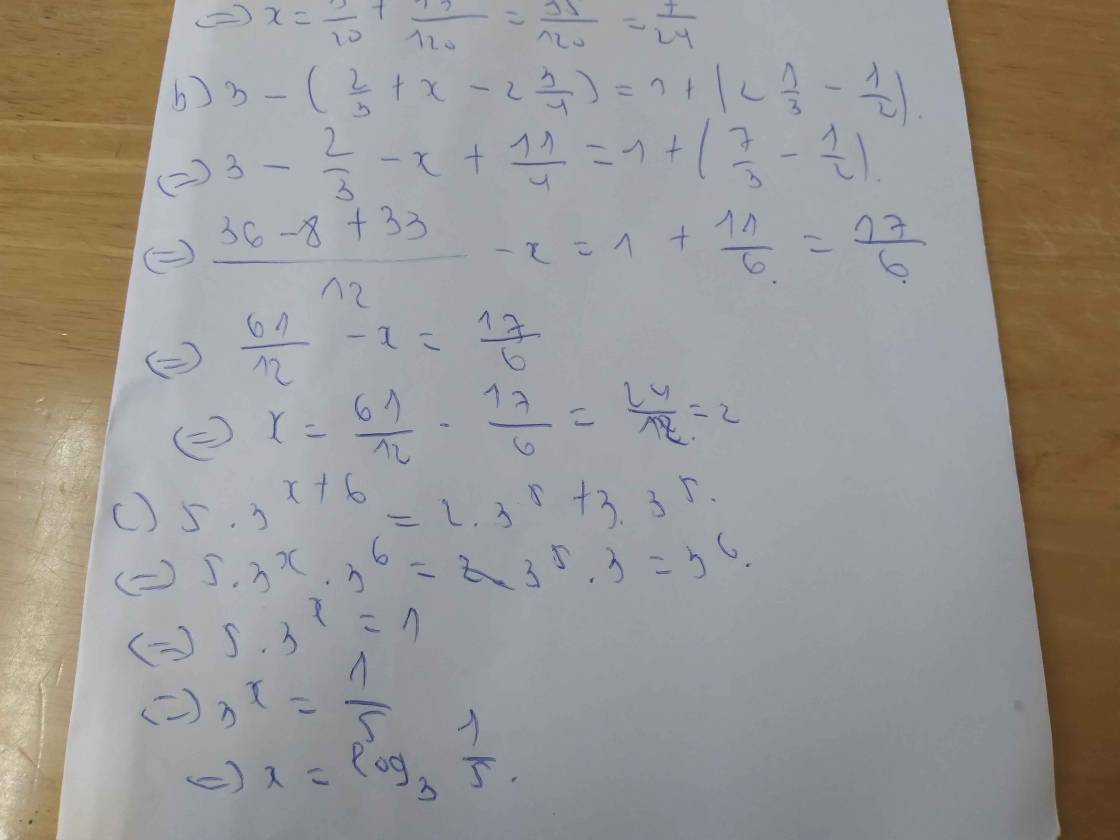 (=) x = 3/20 + /120 = 35/120 = 7/24
b) 3 - ( 2/3 + x - 2 3/4 ) = 1 + ( 2 1/3 - 1/2 ).
(=) 3 - 2/3 - x + 11/4 = 1 + ( 7/3 - 1/2 ).
(=) (36 - 8 + 33)/12 - x = 1 + 11/6 = 17/6
(=) 61/12 - x = 17/6
(=) x = 61/12 - 17/6 = 24/12 = 2
c) 5 . 3^(x+6) = 2 . 3^5 + 3 . 3^5.
(=) 5 . 3^x . 3^6 = 3^5 . 3 = 3^6.
(=) 5 . 3^x = 1
(=) 3^x = 1/5
(=) x = log_3 1/5.